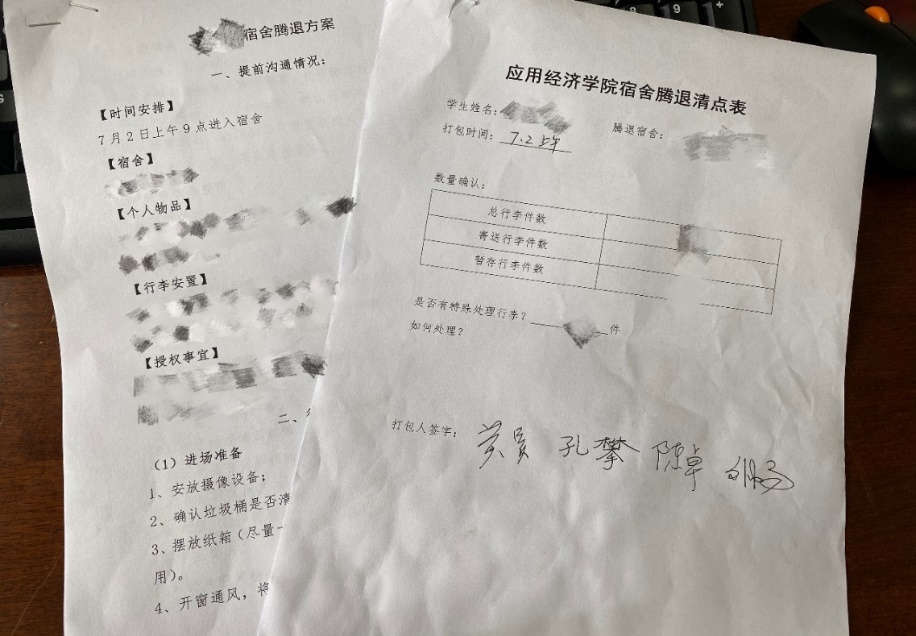 宿舍腾退方案
一、提前沟通情况：
【时间安排】
7月2日上午9点进入宿舍
【宿舍】
【个人物品】
【行李安置】
【授权事宜】
二、
（1）进场准备
1、安放摄像设备；
2、确认垃圾桶是否清
3、摆放纸箱（尽量一
用）。
4、开窗通风，将
应用经济学院宿舍腾退清点表
学生姓名：
腾退宿舍：
打包时间：7.2
数量确认：
总行李件数
寄送行李件数
暂存行李件数
是否有特殊处理行李？
件
如何处理？
打包人签字：
孔攀 陈卓
9
+